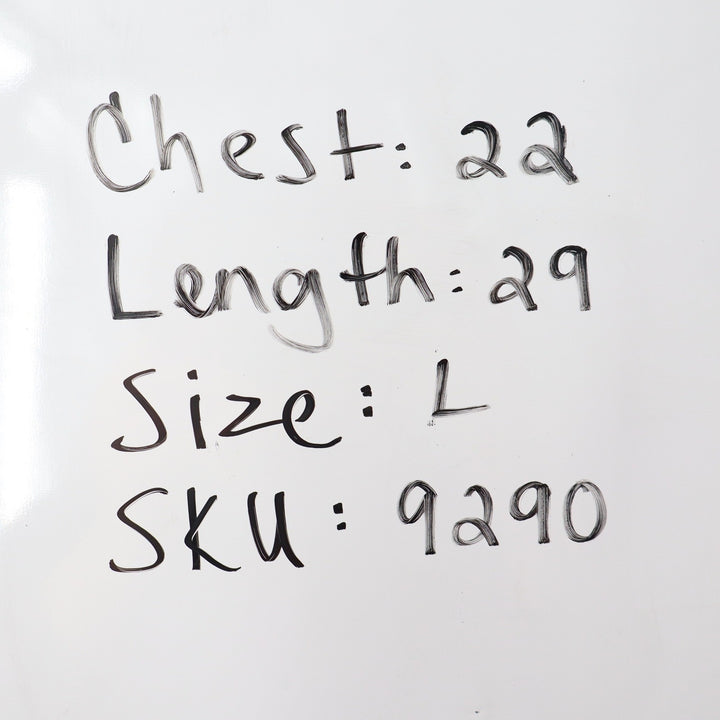 Chest: 22
Length: 29
Size: L
SKU: 9290